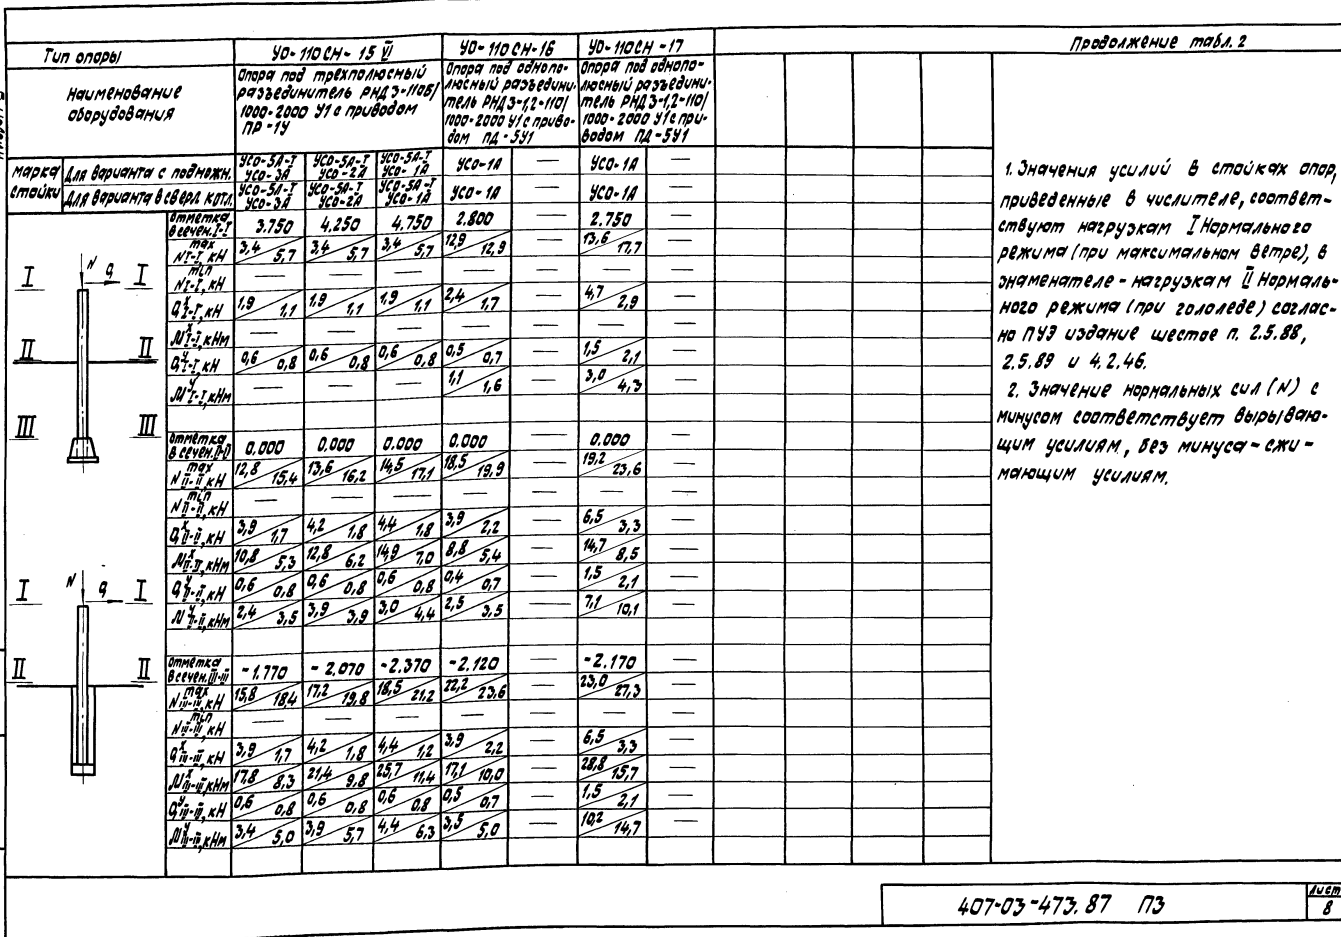 Продолжение табл. 2
Тип опоры УО-110СН-15 VI УО-110СН-16 УО-110СН-17
Наименование оборудования
Опора под трёхполюсный
разъединитель РНДЗ-110Б/
1000-2000 У1 с приводом
ПР-1У
Опора под однопо-
люсный разъедини-
тель РНДЗ-1,2-110/
1000-2000 У1 с приво-
дом ПД-5У1
Опора под однопо-
люсный разъедини-
тель РНДЗ-1,2-110/
1000-2000 У1 с при-
водом ПД-5У1
марка стойки
Для варианта с подножн. УСО-5А-I УСО-3А УСО-5А-I УСО-2А УСО-5А-I УСО-1А УСО-1А — УСО-1А —
Для варианта в сверл. котл. УСО-5А-I УСО-3А УСО-5А-I УСО-2А УСО-5А-I УСО-1А УСО-1А — УСО-1А —
Отметка в сечен. I-I 3.750 4.250 4.750 2.800 — 2.750 —
N max I-I, кН 3,4/5,7 3,4/5,7 3,4/5,7 12,9/12,9 — 13,6/17,7 —
N min I-I, кН — — — — — — —
Q x I-I, кН 1,9/1,1 1,9/1,1 1,9/1,1 2,4/1,7 — 4,7/2,9 —
M x I-I, кНм — — — — — — —
Q y I-I, кН 0,6/0,8 0,6/0,8 0,6/0,8 0,5/0,7 — 1,5/2,1 —
M y I-I, кНм — — — 1,1/1,6 — 3,0/4,3 —
Отметка в сечен. II-II 0.000 0.000 0.000 0.000 — 0.000 —
N max II-II, кН 12,8/15,4 13,6/16,2 14,5/17,1 18,5/19,9 — 19,2/23,6 —
N min II-II, кН — — — — — — —
Q x II-II, кН 3,9/1,7 4,2/1,8 4,4/1,8 3,9/2,2 — 6,5/3,3 —
M x II-II, кНм 10,8/5,3 12,8/6,2 14,9/7,0 8,8/5,4 — 14,7/8,5 —
Q y II-II, кН 0,6/0,8 0,6/0,8 0,6/0,8 0,4/0,7 — 1,5/2,1 —
M y II-II, кНм 2,4/3,5 3,9/3,9 3,0/4,4 2,5/3,5 — 7,1/10,1 —
Отметка в сечен. III-III -1.770 -2.070 -2.370 -2.120 — -2.170 —
N max III-III, кН 15,8/18,4 17,2/19,8 18,5/21,2 22,2/23,6 — 23,0/27,3 —
N min III-III, кН — — — — — — —
Q x III-III, кН 3,9/1,7 4,2/1,8 4,4/1,2 3,9/2,2 — 6,5/3,3 —
M x III-III, кНм 17,8/8,3 21,4/9,8 25,7/11,4 17,1/10,0 — 28,8/15,7 —
Q y III-III, кН 0,6/0,8 0,6/0,8 0,6/0,8 0,5/0,7 — 1,5/2,1 —
M y III-III, кНм 3,4/5,0 3,9/5,7 4,4/6,3 3,5/5,0 — 10,2/14,7 —
N q
I I
II II
III III
N q
I I
II II
1. Значения усилий в стойках опор,
приведенные в числителе, соответ-
ствуют нагрузкам I Нормального
режима (при максимальном ветре), в
знаменателе - нагрузкам II Нормаль-
ного режима (при гололеде) соглас-
но ПУЭ издание шестое п. 2.5.88,
2.5.89 и 4.2.46.
2. Значение нормальных сил (N) с
минусом соответствует вырываю-
щим усилиям, без минуса - сжи-
мающим усилиям.
407-03-473.87 ПЗ
Лист
8